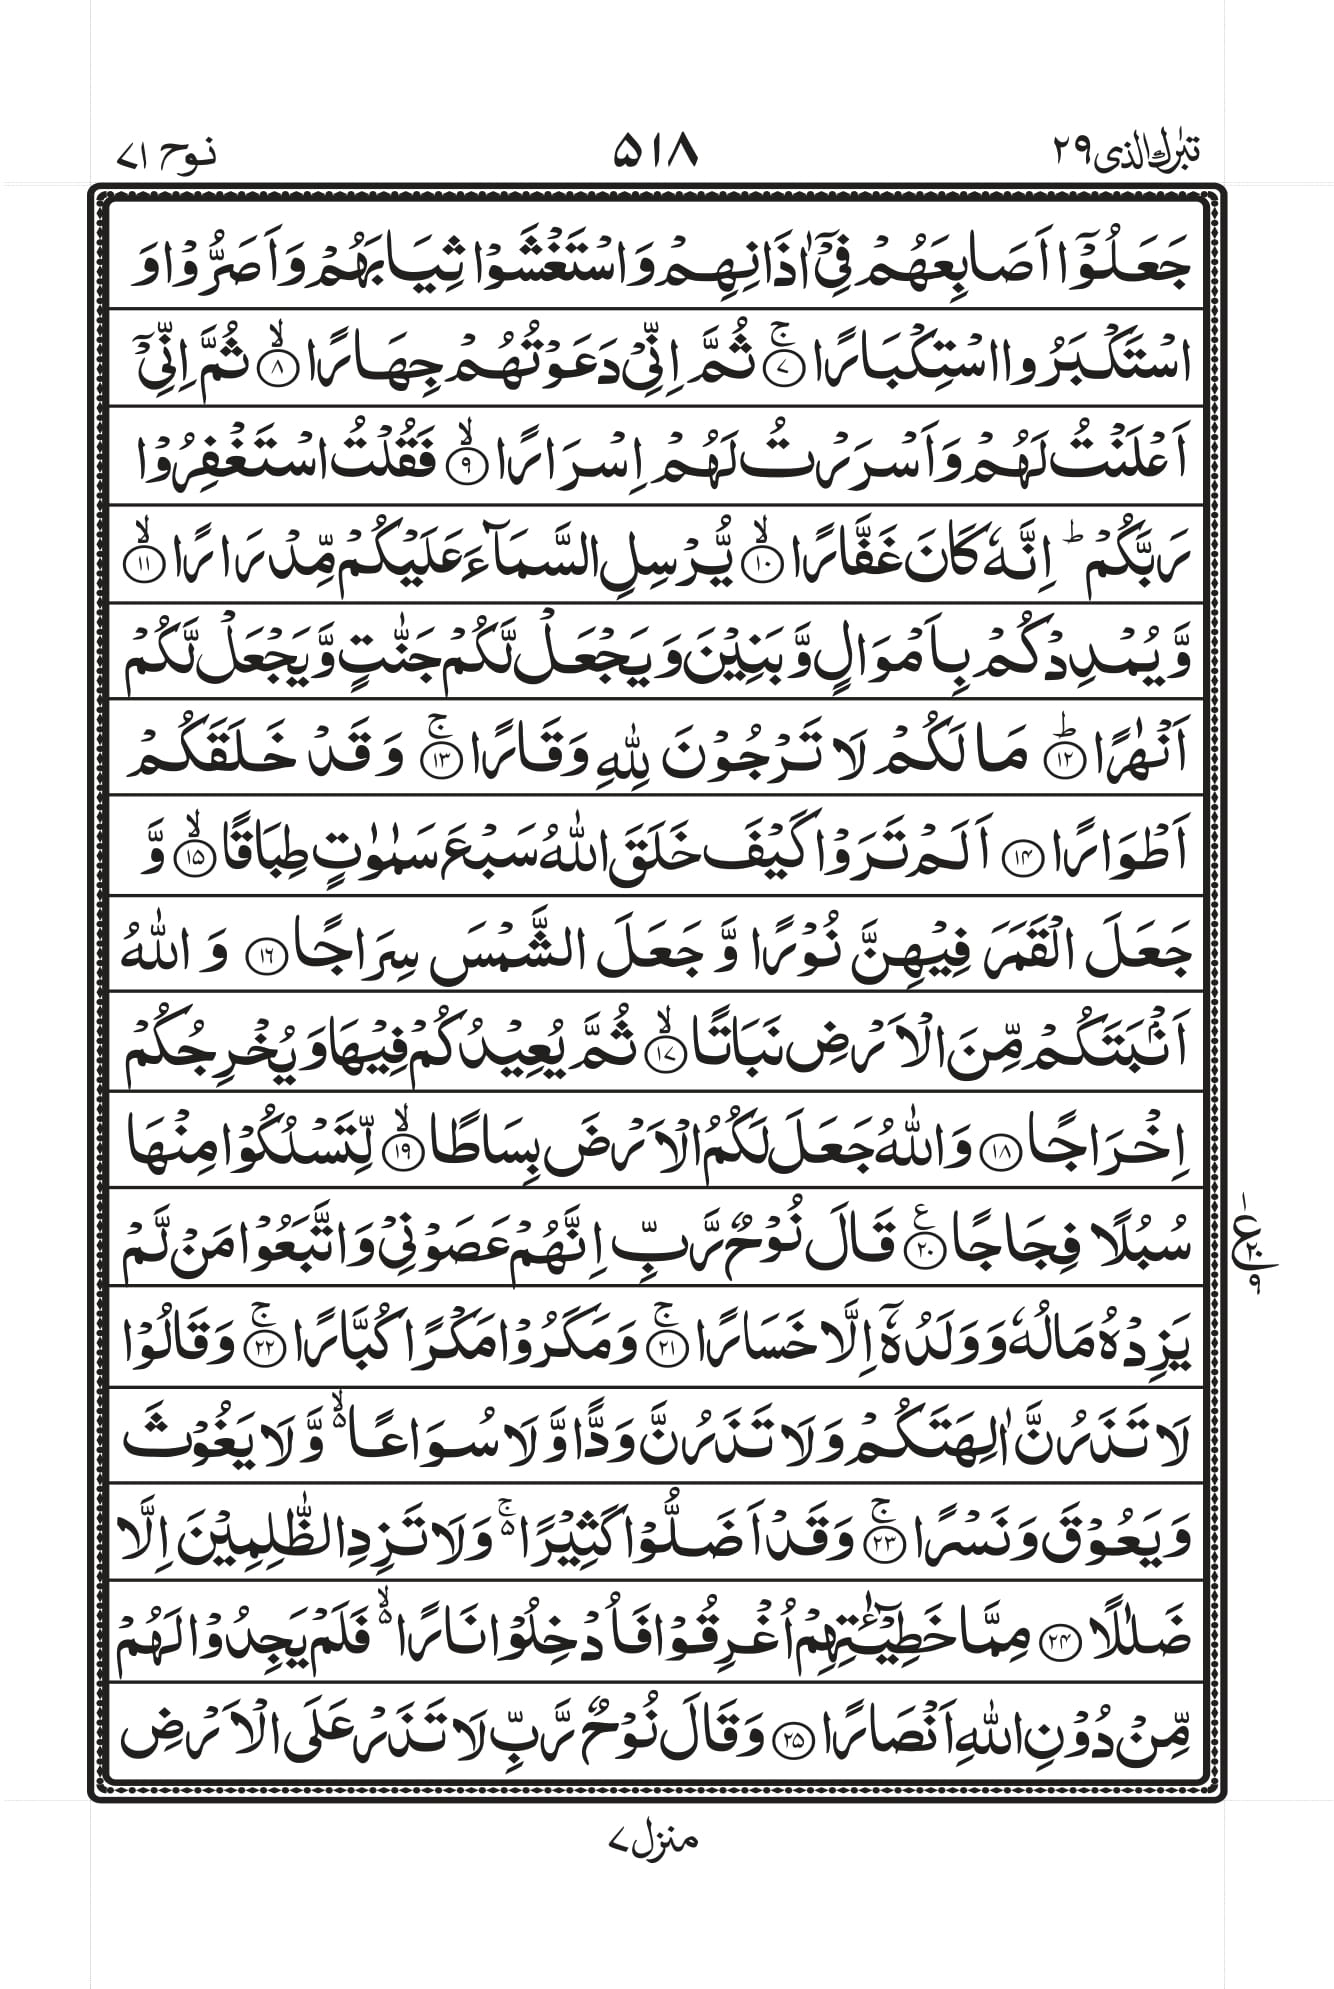 تبٰرك الذی ۲۹
۵۱۸
نوح ۷۱
جَعَلُوْۤا اَصَابِعَهُمْ فِیْۤ اٰذَانِهِمْ وَاسْتَغْشَوْا ثِیَابَهُمْ وَاَصَرُّوْا وَ
اسْتَكْبَرُوا اسْتِكْبَارًا ۚ‏﴿۷﴾ ثُمَّ اِنِّیْ دَعَوْتُهُمْ جِهَارًا ۙ‏﴿۸﴾ ثُمَّ اِنِّیْۤ
اَعْلَنْتُ لَهُمْ وَاَسْرَرْتُ لَهُمْ اِسْرَارًا ۙ‏﴿۹﴾ فَقُلْتُ اسْتَغْفِرُوْا
رَبَّكُمْ ؕ اِنَّهٗ كَانَ غَفَّارًا ۙ‏﴿۱۰﴾ یُّرْسِلِ السَّمَآءَ عَلَیْكُمْ مِّدْرَارًا ۙ‏﴿۱۱﴾
وَّیُمْدِدْكُمْ بِاَمْوَالٍ وَّبَنِیْنَ وَیَجْعَلْ لَّكُمْ جَنّٰتٍ وَّیَجْعَلْ لَّكُمْ
اَنْهٰرًا ؕ‏﴿۱۲﴾ مَا لَكُمْ لَا تَرْجُوْنَ لِلّٰهِ وَقَارًا ۚ‏﴿۱۳﴾ وَقَدْ خَلَقَكُمْ
اَطْوَارًا ﴿۱۴﴾ اَلَمْ تَرَوْا كَیْفَ خَلَقَ اللّٰهُ سَبْعَ سَمٰوٰتٍ طِبَاقًا ۙ‏﴿۱۵﴾ وَّ
جَعَلَ الْقَمَرَ فِیْهِنَّ نُوْرًا وَّجَعَلَ الشَّمْسَ سِرَاجًا ﴿۱۶﴾ وَاللّٰهُ
اَنْۢبَتَكُمْ مِّنَ الْاَرْضِ نَبَاتًا ۙ‏﴿۱۷﴾ ثُمَّ یُعِیْدُكُمْ فِیْهَا وَیُخْرِجُكُمْ
اِخْرَاجًا ﴿۱۸﴾ وَاللّٰهُ جَعَلَ لَكُمُ الْاَرْضَ بِسَاطًا ۙ‏﴿۱۹﴾ لِّتَسْلُكُوْا مِنْهَا
سُبُلًا فِجَاجًا ﴿۲۰﴾ ع قَالَ نُوْحٌ رَّبِّ اِنَّهُمْ عَصَوْنِیْ وَاتَّبَعُوْا مَنْ لَّمْ
ع ۱ ۲۰ ۹
یَزِدْهُ مَالُهٗ وَوَلَدُهٗۤ اِلَّا خَسَارًا ۚ‏﴿۲۱﴾ وَمَكَرُوْا مَكْرًا كُبَّارًا ۚ‏﴿۲۲﴾ وَقَالُوْا
لَا تَذَرُنَّ اٰلِهَتَكُمْ وَلَا تَذَرُنَّ وَدًّا وَّلَا سُوَاعًا ۙ۬ وَّلَا یَغُوْثَ
وَیَعُوْقَ وَنَسْرًا ۚ‏﴿۲۳﴾ وَقَدْ اَضَلُّوْا كَثِیْرًا ۚ۬ وَلَا تَزِدِ الظّٰلِمِیْنَ اِلَّا
ضَلٰلًا ﴿۲۴﴾ مِمَّا خَطِیْٓـٰٔتِهِمْ اُغْرِقُوْا فَاُدْخِلُوْا نَارًا ۙ۬ فَلَمْ یَجِدُوْا لَهُمْ
مِّنْ دُوْنِ اللّٰهِ اَنْصَارًا ﴿۲۵﴾ وَقَالَ نُوْحٌ رَّبِّ لَا تَذَرْ عَلَی الْاَرْضِ
منزل ۷